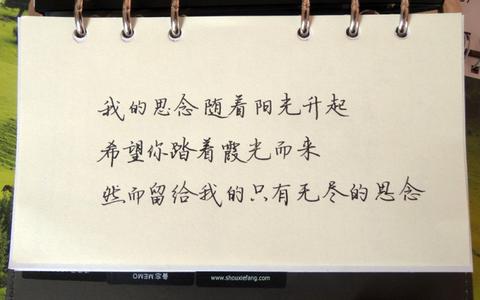 我的思念随着阳光升起
希望你踏着霞光而来
然而留给我的只有无尽的思念
www.shouxiefang.com